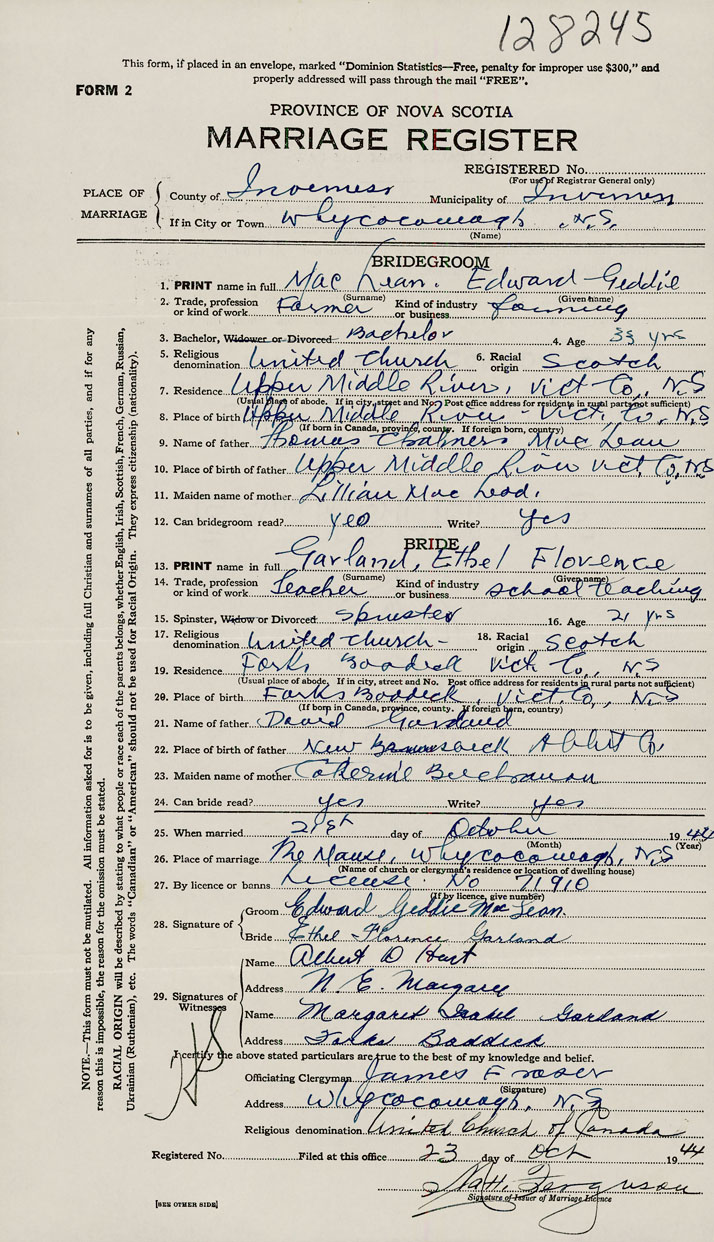 128245
This form, if placed in an envelope, marked "Dominion Statistics—Free, penalty for improper use $300," and
properly addressed will pass through the mail "FREE".
FORM 2
PROVINCE OF NOVA SCOTIA
MARRIAGE REGISTER
REGISTERED No.
(For use of Registrar General only)
PLACE OF MARRIAGE
County of Inverness Municipality of Inverness
If in City or Town Whycocomagh, N.S.
(Name)
BRIDEGROOM
1. PRINT name in full MacLean. Edward Geddie
(Surname) (Given name)
2. Trade, profession or kind of work Farmer Kind of industry or business farming
3. Bachelor, Widower or Divorced Bachelor 4. Age 33 yrs
5. Religious denomination United Church 6. Racial origin Scotch
7. Residence Upper Middle River, Vict Co, N.S
(Usual place of abode. If in city, street and No. Post office address for residents in rural parts not sufficient)
8. Place of birth Upper Middle River Vict. Co, N.S
(If born in Canada, province, county. If foreign born, country)
9. Name of father Thomas Chalmers MacLean
10. Place of birth of father Upper Middle River Vict. Co, N.S
11. Maiden name of mother Lillian MacLeod.
12. Can bridegroom read? yes Write? yes
BRIDE
13. PRINT name in full Garland, Ethel Florence
(Surname) (Given name)
14. Trade, profession or kind of work Teacher Kind of industry or business school teaching
15. Spinster, Widow or Divorced Spinster 16. Age 21 yrs
17. Religious denomination United Church - 18. Racial origin Scotch
19. Residence Forks Baddeck Vict Co., N.S
(Usual place of abode. If in city, street and No. Post office address for residents in rural parts not sufficient)
20. Place of birth Forks Baddeck, Vict. Co., N.S
(If born in Canada, province, county. If foreign born, country)
21. Name of father David Garland
22. Place of birth of father New Brunswick Co,
23. Maiden name of mother Catherine Buchanan
24. Can bride read? yes Write? yes
25. When married 21st day of October 1944
(Month) (Year)
26. Place of marriage The Manse, Whycocomagh, N.S
(Name of church or clergyman's residence or location of dwelling house)
27. By licence or banns License No 71910
(If by licence, give number)
28. Signature of
Groom Edward Geddie MacLean.
Bride Ethel Florence Garland
29. Signatures of Witnesses
Name Albert D Hart
Address N. E. Margaree
Name Margaret Isabel Garland
Address Forks Baddeck
I certify the above stated particulars are true to the best of my knowledge and belief.
Officiating Clergyman James Fraser
(Signature)
Address Whycocomagh, N.S
Religious denomination United Church of Canada
Registered No. Filed at this office 23 day of Oct 1944
Ferguson
Signature of Issuer of Marriage Licence
[SEE OTHER SIDE]
NOTE.—This form must not be mutilated. All information asked for is to be given, including full Christian and surnames of all parties, and if for any
reason this is impossible, the reason for the omission must be stated.
RACIAL ORIGIN will be described by stating to what people or race each of the parents belongs, whether English, Irish, Scottish, French, German, Russian,
Ukrainian (Ruthenian), etc. The words "Canadian" or "American" should not be used for Racial Origin. They express citizenship (nationality).